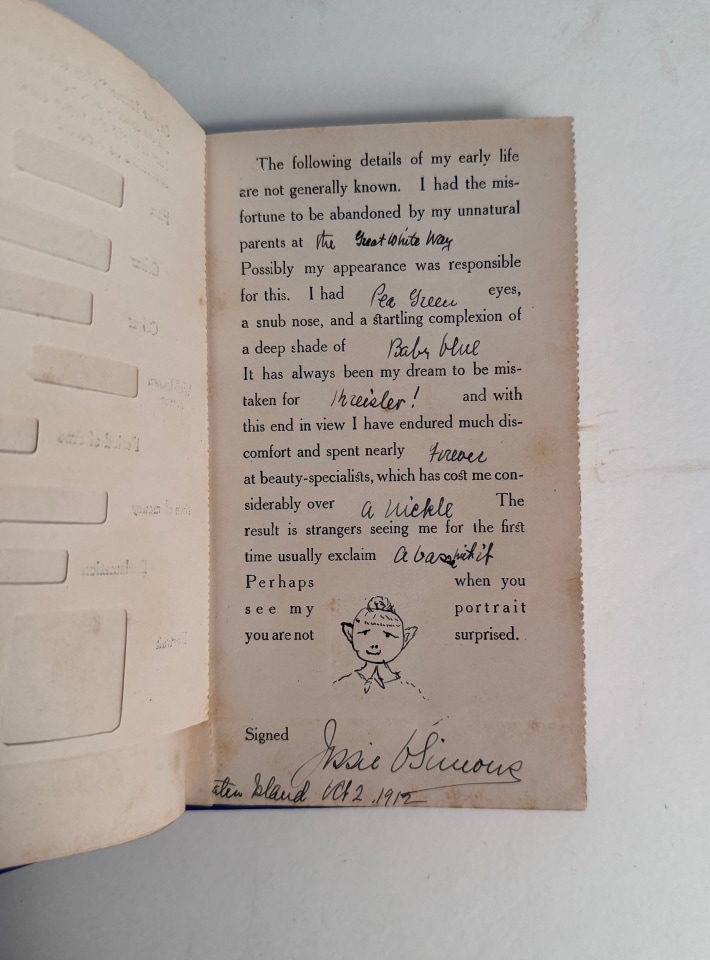 The following details of my early life
are not generally known. I had the mis-
fortune to be abandoned by my unnatural
parents at the Great White Way
Possibly my appearance was responsible
for this. I had Pea Green eyes,
a snub nose, and a startling complexion of
a deep shade of Baby blue
It has always been my dream to be mis-
taken for Kreisler! and with
this end in view I have endured much dis-
comfort and spent nearly Forever
at beauty-specialists, which has cost me con-
siderably over a nickle The
result is strangers seeing me for the first
time usually exclaim
Perhaps when you
see my portrait
you are not surprised.
Signed Jessie Simons
Island Oct 2. 1912